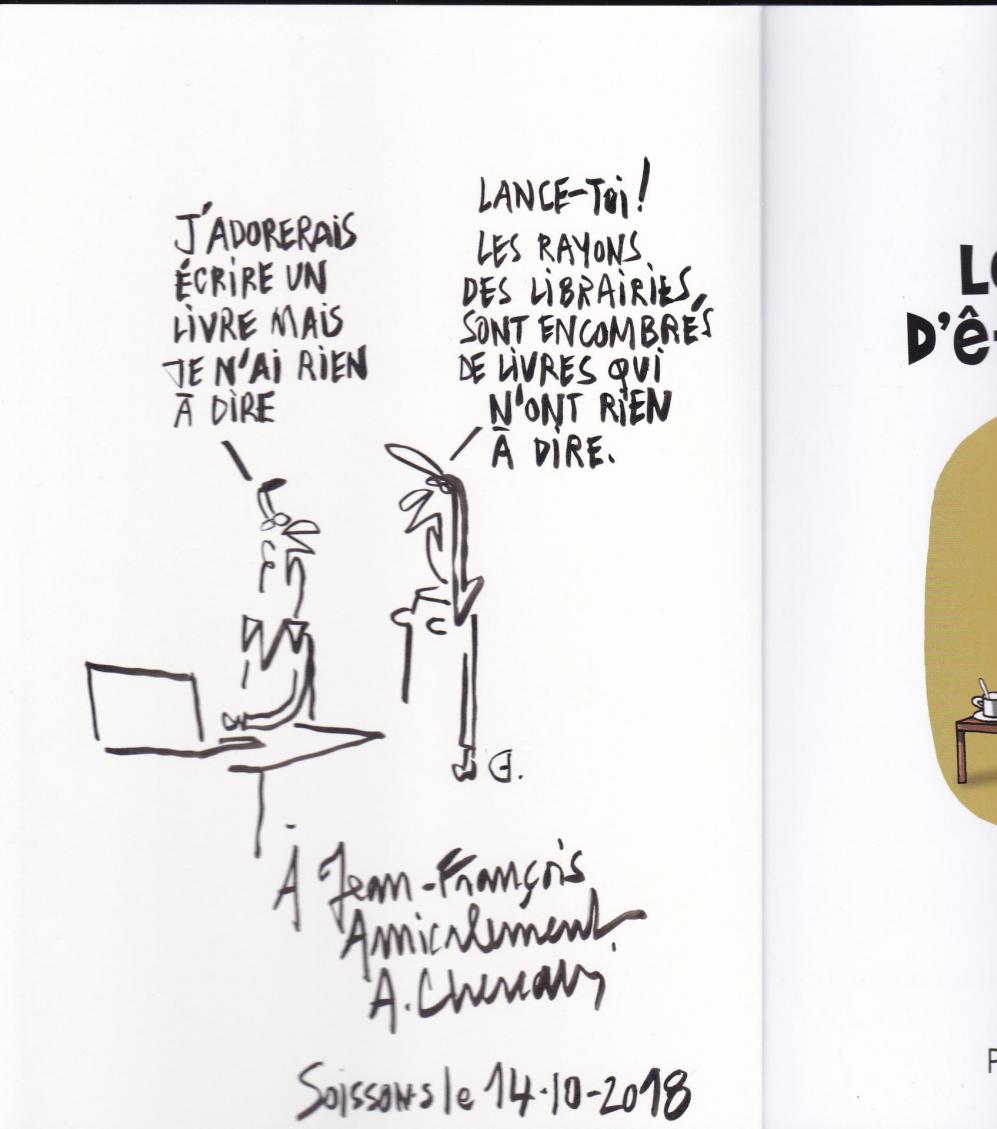 J'ADORERAIS
ÉCRIRE UN
LIVRE MAIS
JE N'AI RIEN
À DIRE
LANCE-TOI!
LES RAYONS
DES LIBRAIRIES
SONT ENCOMBRÉS
DE LIVRES QUI
N'ONT RIEN
À DIRE.
À Jean-François
Amicalement
A.
Soissons le 14-10-2018
D'ê